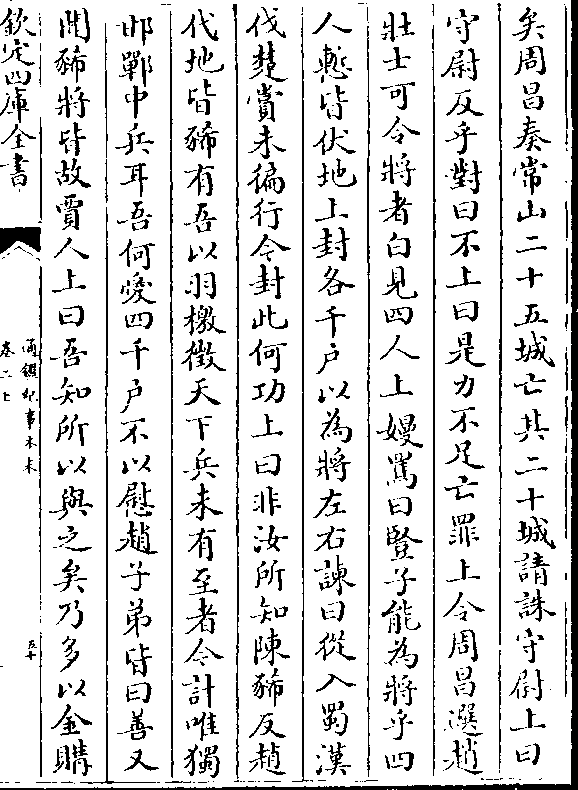 矣周昌奏常山二十五城亡其二十城請誅守尉上曰
守尉反乎對曰不上曰是力不足亡罪上令周昌選趙
壯士可令將者白見四人上嫚罵曰豎子能為將乎四
人慙皆伏地上封各千户以為將左右諫曰從入蜀漢
伐楚賞未徧行今封此何功上曰非汝所知陳豨反趙
代地皆豨有吾以羽檄徵天下兵未有至者今計唯獨
邯鄲中兵耳吾何愛四千户不以慰趙子弟皆曰善又
聞豨將皆故賈人上曰吾知所以與之矣乃多以金購
欽定四庫全書
通鑑紀事本末
卷二上
五十